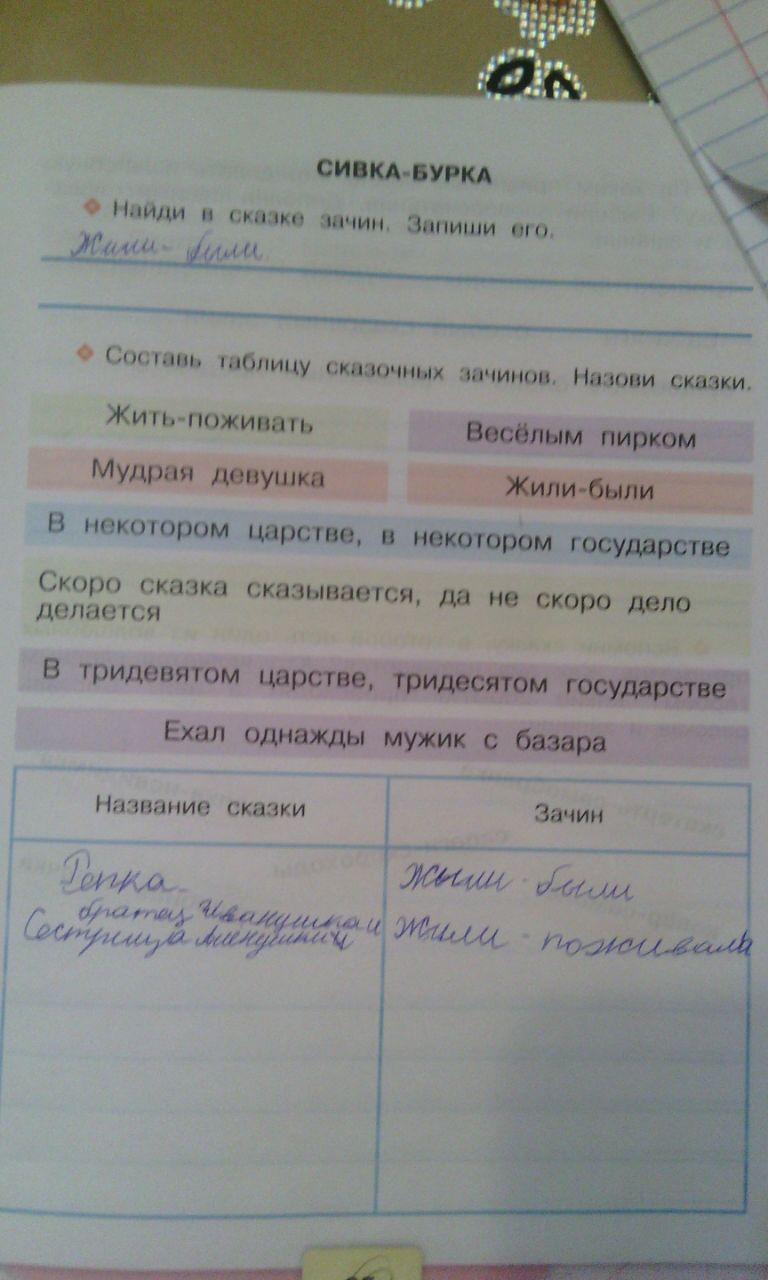 СИВКА-БУРКА
Найди в сказке зачин. Запиши его.
Жили-были.
Составь таблицу сказочных зачинов. Назови сказки.
Жить-поживать
Весёлым пирком
Мудрая девушка
Жили-были
В некотором царстве, в некотором государстве
Скоро сказка сказывается, да не скоро дело
делается
В тридевятом царстве, тридесятом государстве
Ехал однажды мужик с базара
Название сказки
Зачин
Репка
Жыли-были
братец Иванушка и
Сестрица
Жили-поживала